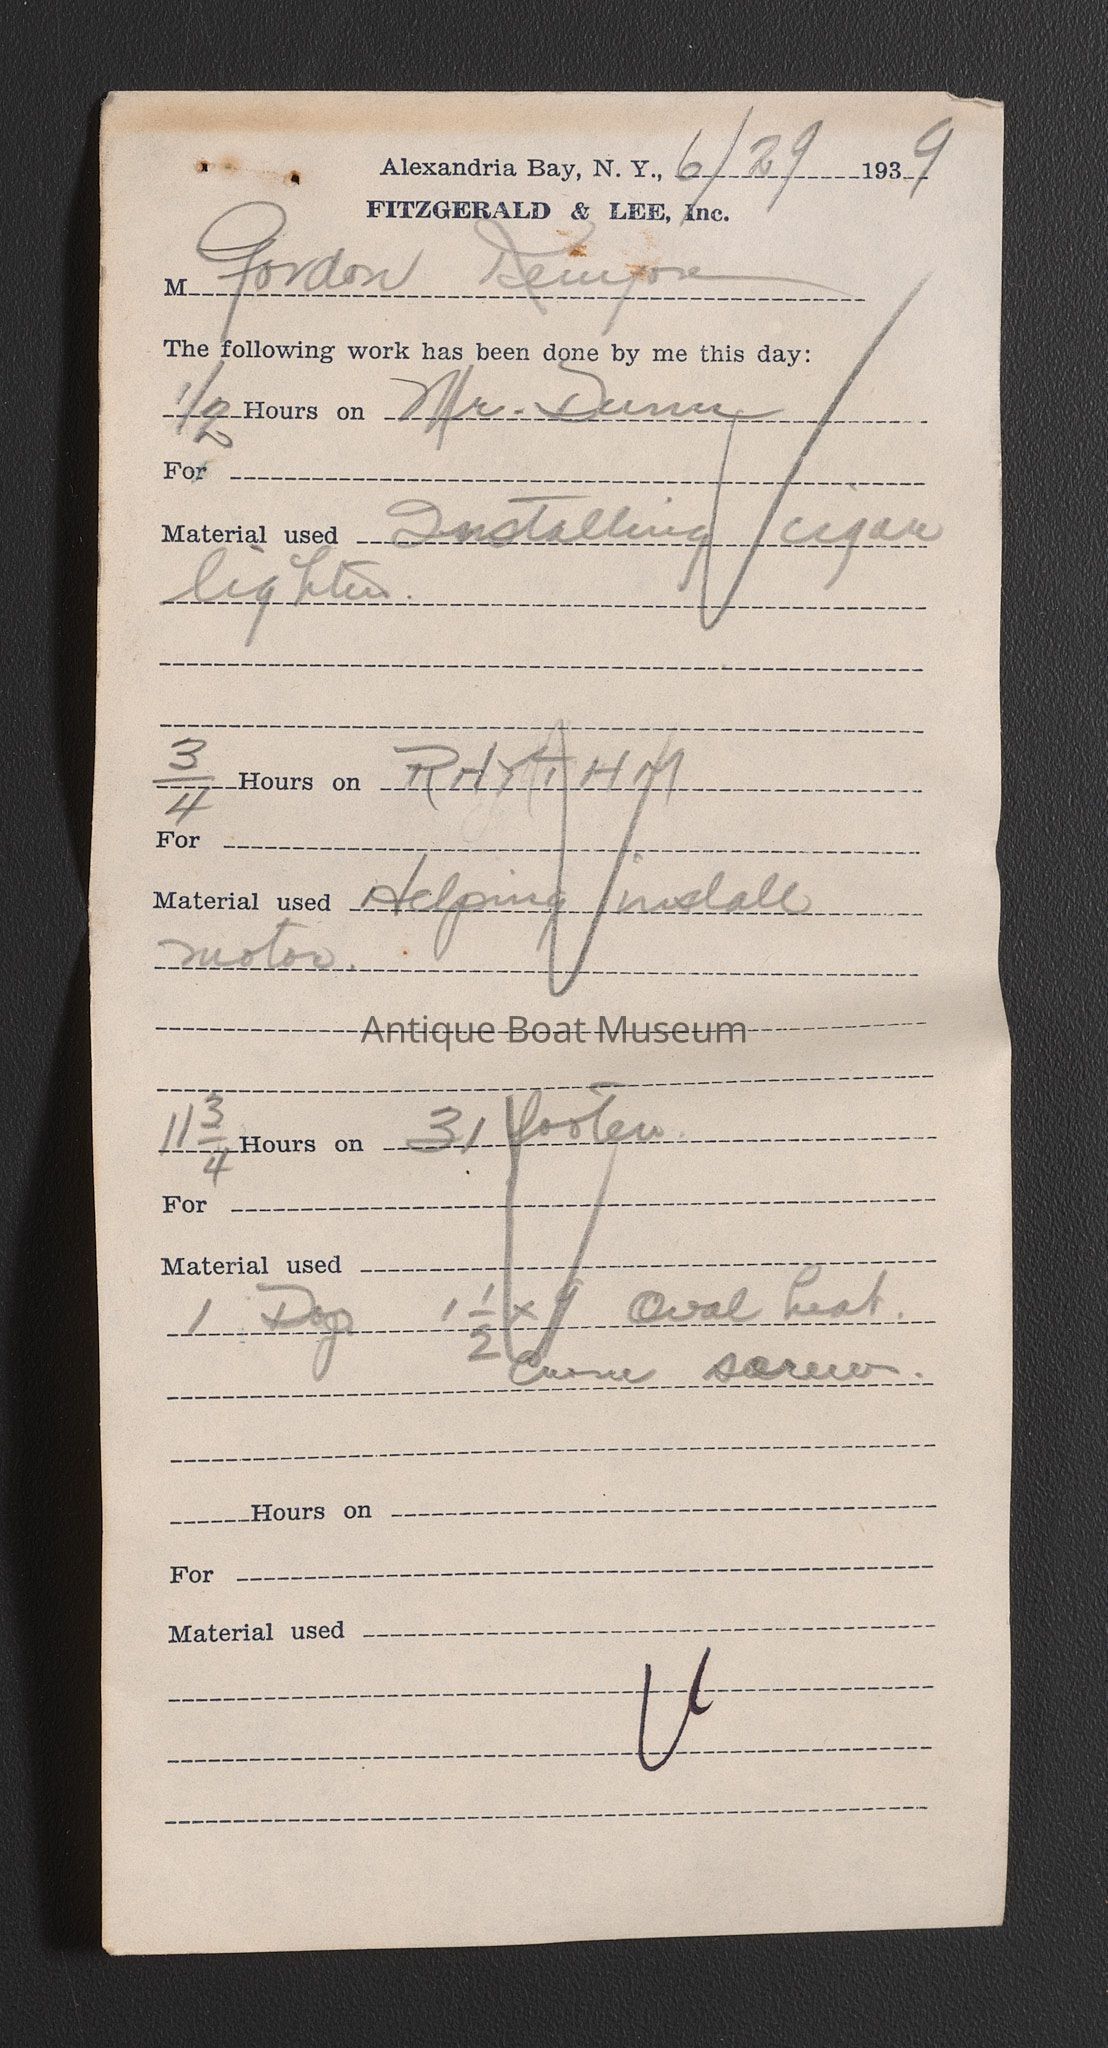 Alexandria Bay, N. Y., 6/29 1939
FITZGERALD & LEE, Inc.
M Gordon Kenyon
The following work has been done by me this day:
1/2 Hours on Mr. Dunn
For
Material used Installing cigar
lighter.
3/4 Hours on RHYTHM
For
Material used Helping install
motor.
Antique Boat Museum
11 3/4 Hours on 31 footer.
For
Material used
1 Doz 1 1/2 x 9 Oval heat.
screw.
Hours on
For
Material used